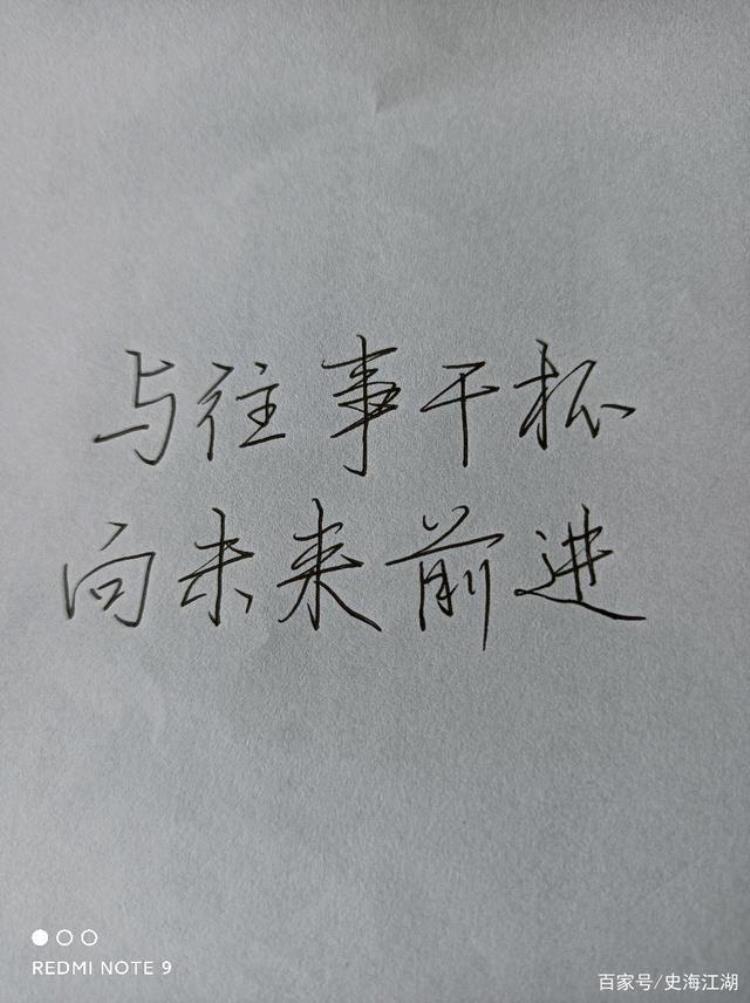 与往事干杯
向未来前进
REDMI NOTE 9
百家号/史海江湖